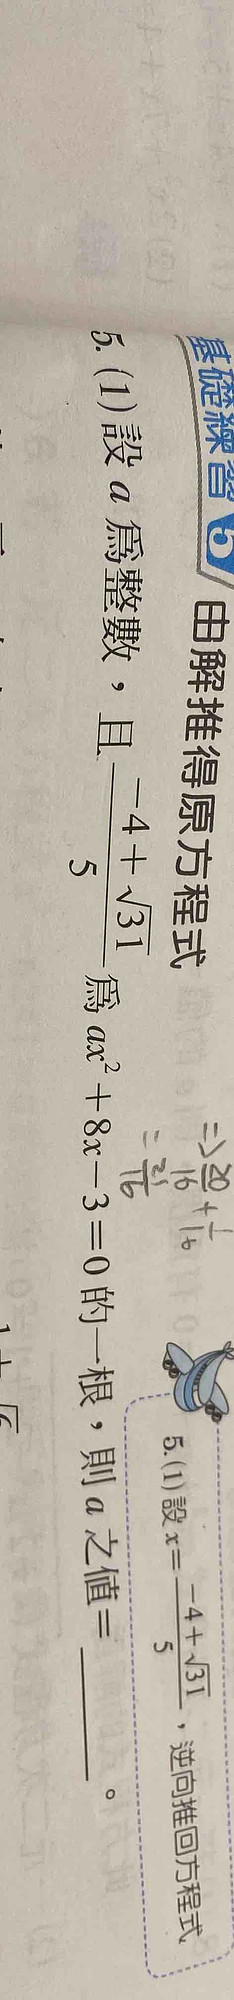 基礎練習 5 由解推得原方程式
5. (1) 設 a 為整數，且 \frac{-4+\sqrt{31}}{5} 為 ax²+8x−3=0 的一根，則 a 之值=______。
=> \frac{20}{16} + \frac{1}{16}
= \frac{21}{16}
5.(1) 設 x= \frac{-4+\sqrt{31}}{5}，逆向推回方程式